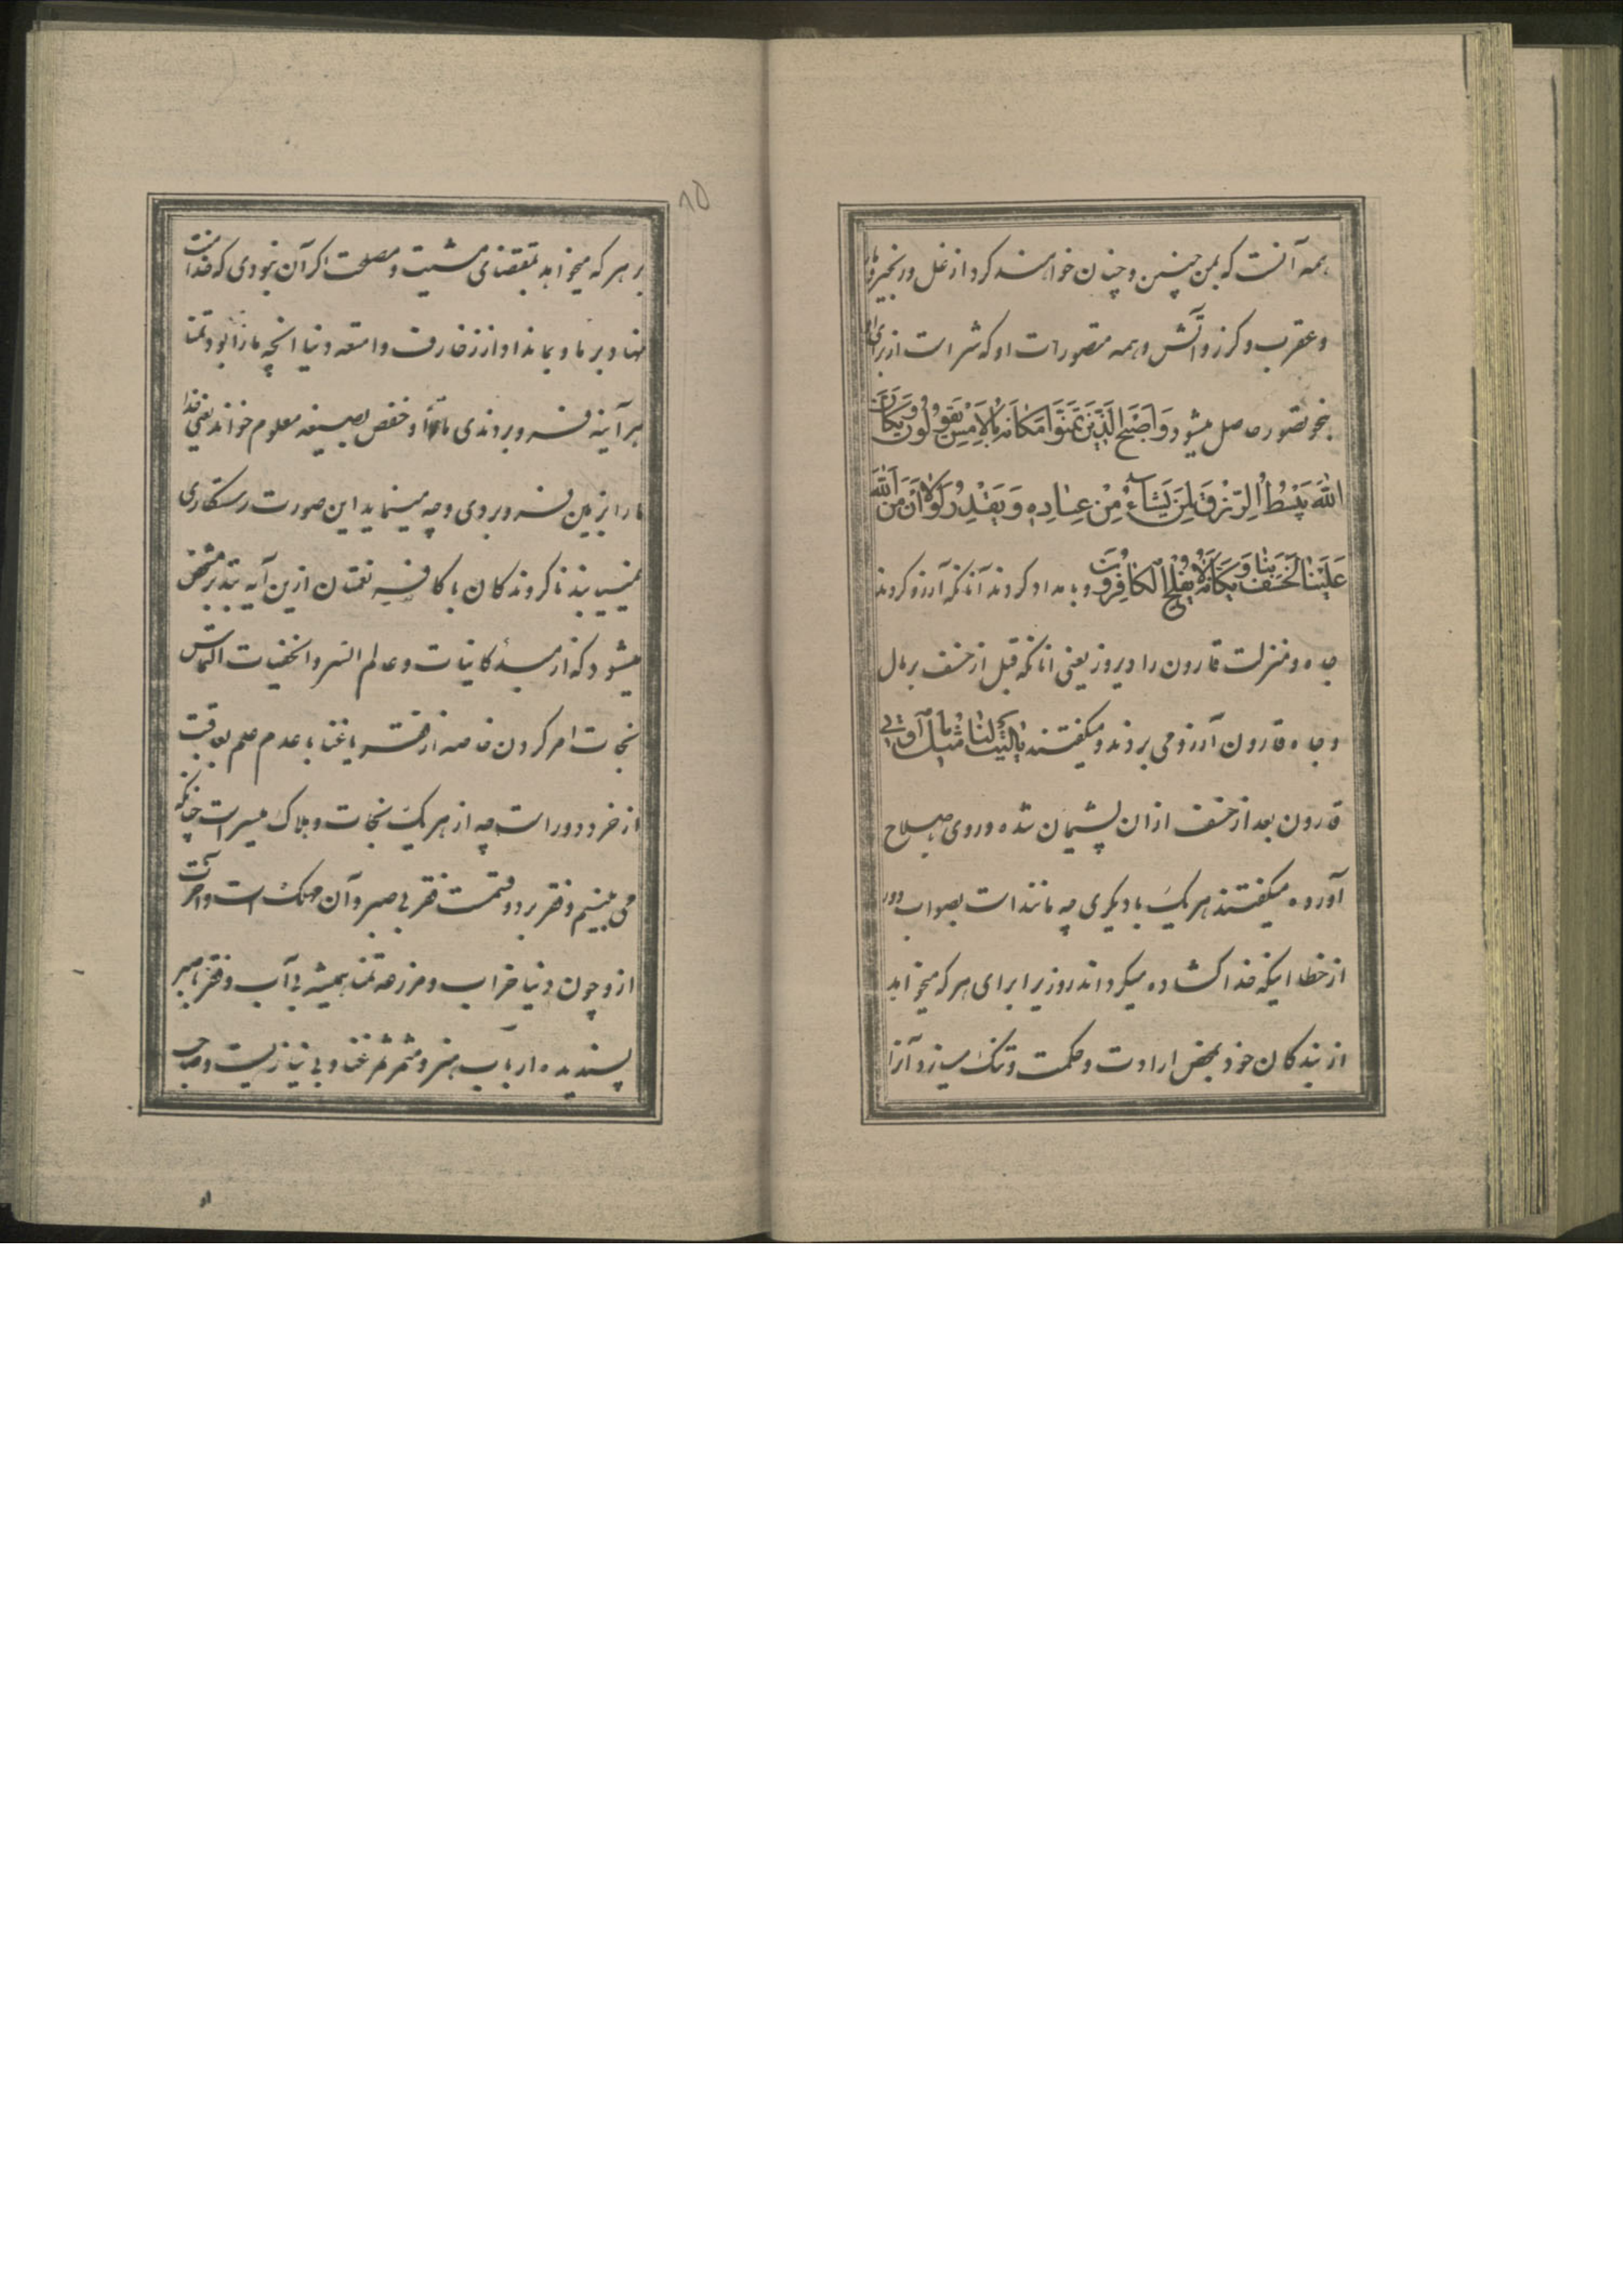 همه آنست که بمن چنین و چنان خواهند کرد از غل و زنجیر و مار
و عقرب و کرز و آتش و همه متصورات او که شر است از برای او
بنحو تصور حاصل میشود وَاَصْبَحَ الَّذِینَ تَمَنَّوْا مَکَانَهُ بِالْاَمْسِ یَقُولُونَ وَیْکَاَنَّ
اللّٰهَ یَبْسُطُ الرِّزْقَ لِمَنْ یَشَآءُ مِنْ عِبادِهِ وَ یَقْدِرُ لَوْلَا اَنْ مَنَّ اللّٰهُ
عَلَیْنَا لَخَسَفَ بِنَا وَیْکَاَنَّهُ لَا یُفْلِحُ الْکَافِرُونَ و بامداد کردند آنانکه آرزو کردند
جاه و منزلت قارون را دیروز یعنی انانکه قبل از خسف بر مال
و جاه قارون آرزو می بردند و میکفتند یَالَیْتَ لَنَا مِثْلَ مَا اُوتِیَ
قارون بعد از خسف ازان پشیمان شده و روی بصلاح
آورده میکفتند هر یک با دیکری چه مانند است بصواب و دور
از خطا اینکه خدا کشاده میکرداند روزیرا برای هر که میخواهد
از بندکان خود بمحض ارادت و حکمت و تنک میسازد آنرا
۸۵
بر هر که میخواهد بمقتضای مشیت و مصلحت اکر آن نبودی که خدا منت
نهاد بر ما و بما نداد از زخارف و امتعه دنیا انچه ما را بود تمنا
هر آینه فرو بردندی ما را و حفص بصیغه معلوم خواند یعنی خدا
ما را بزمین فرو بردی و چه مینماید این صورت رستکاری
نمییابند ناکروندکان یا کافر نعمتان ازین آیه بتدبر مشخص
میشود که از مبدأ کاینات و عالم السر و الخفیات التماس
نجات امر کردن خاصه از فقر یا غنا با عدم علم بعاقبت
از خرد دور است چه از هر یک نجات و هلاک میسر است چنانکه
می بینیم و فقر بر دو قسمت فقر بی صبر و آن مهلک است و آخرت
ازو چون دنیا خراب و مزرعه تمنا همیشه بی آب و فقر با صبر
پسندیده ارباب هنر و مثمر ثمر غنا و بی نیازیست و صاحب
او